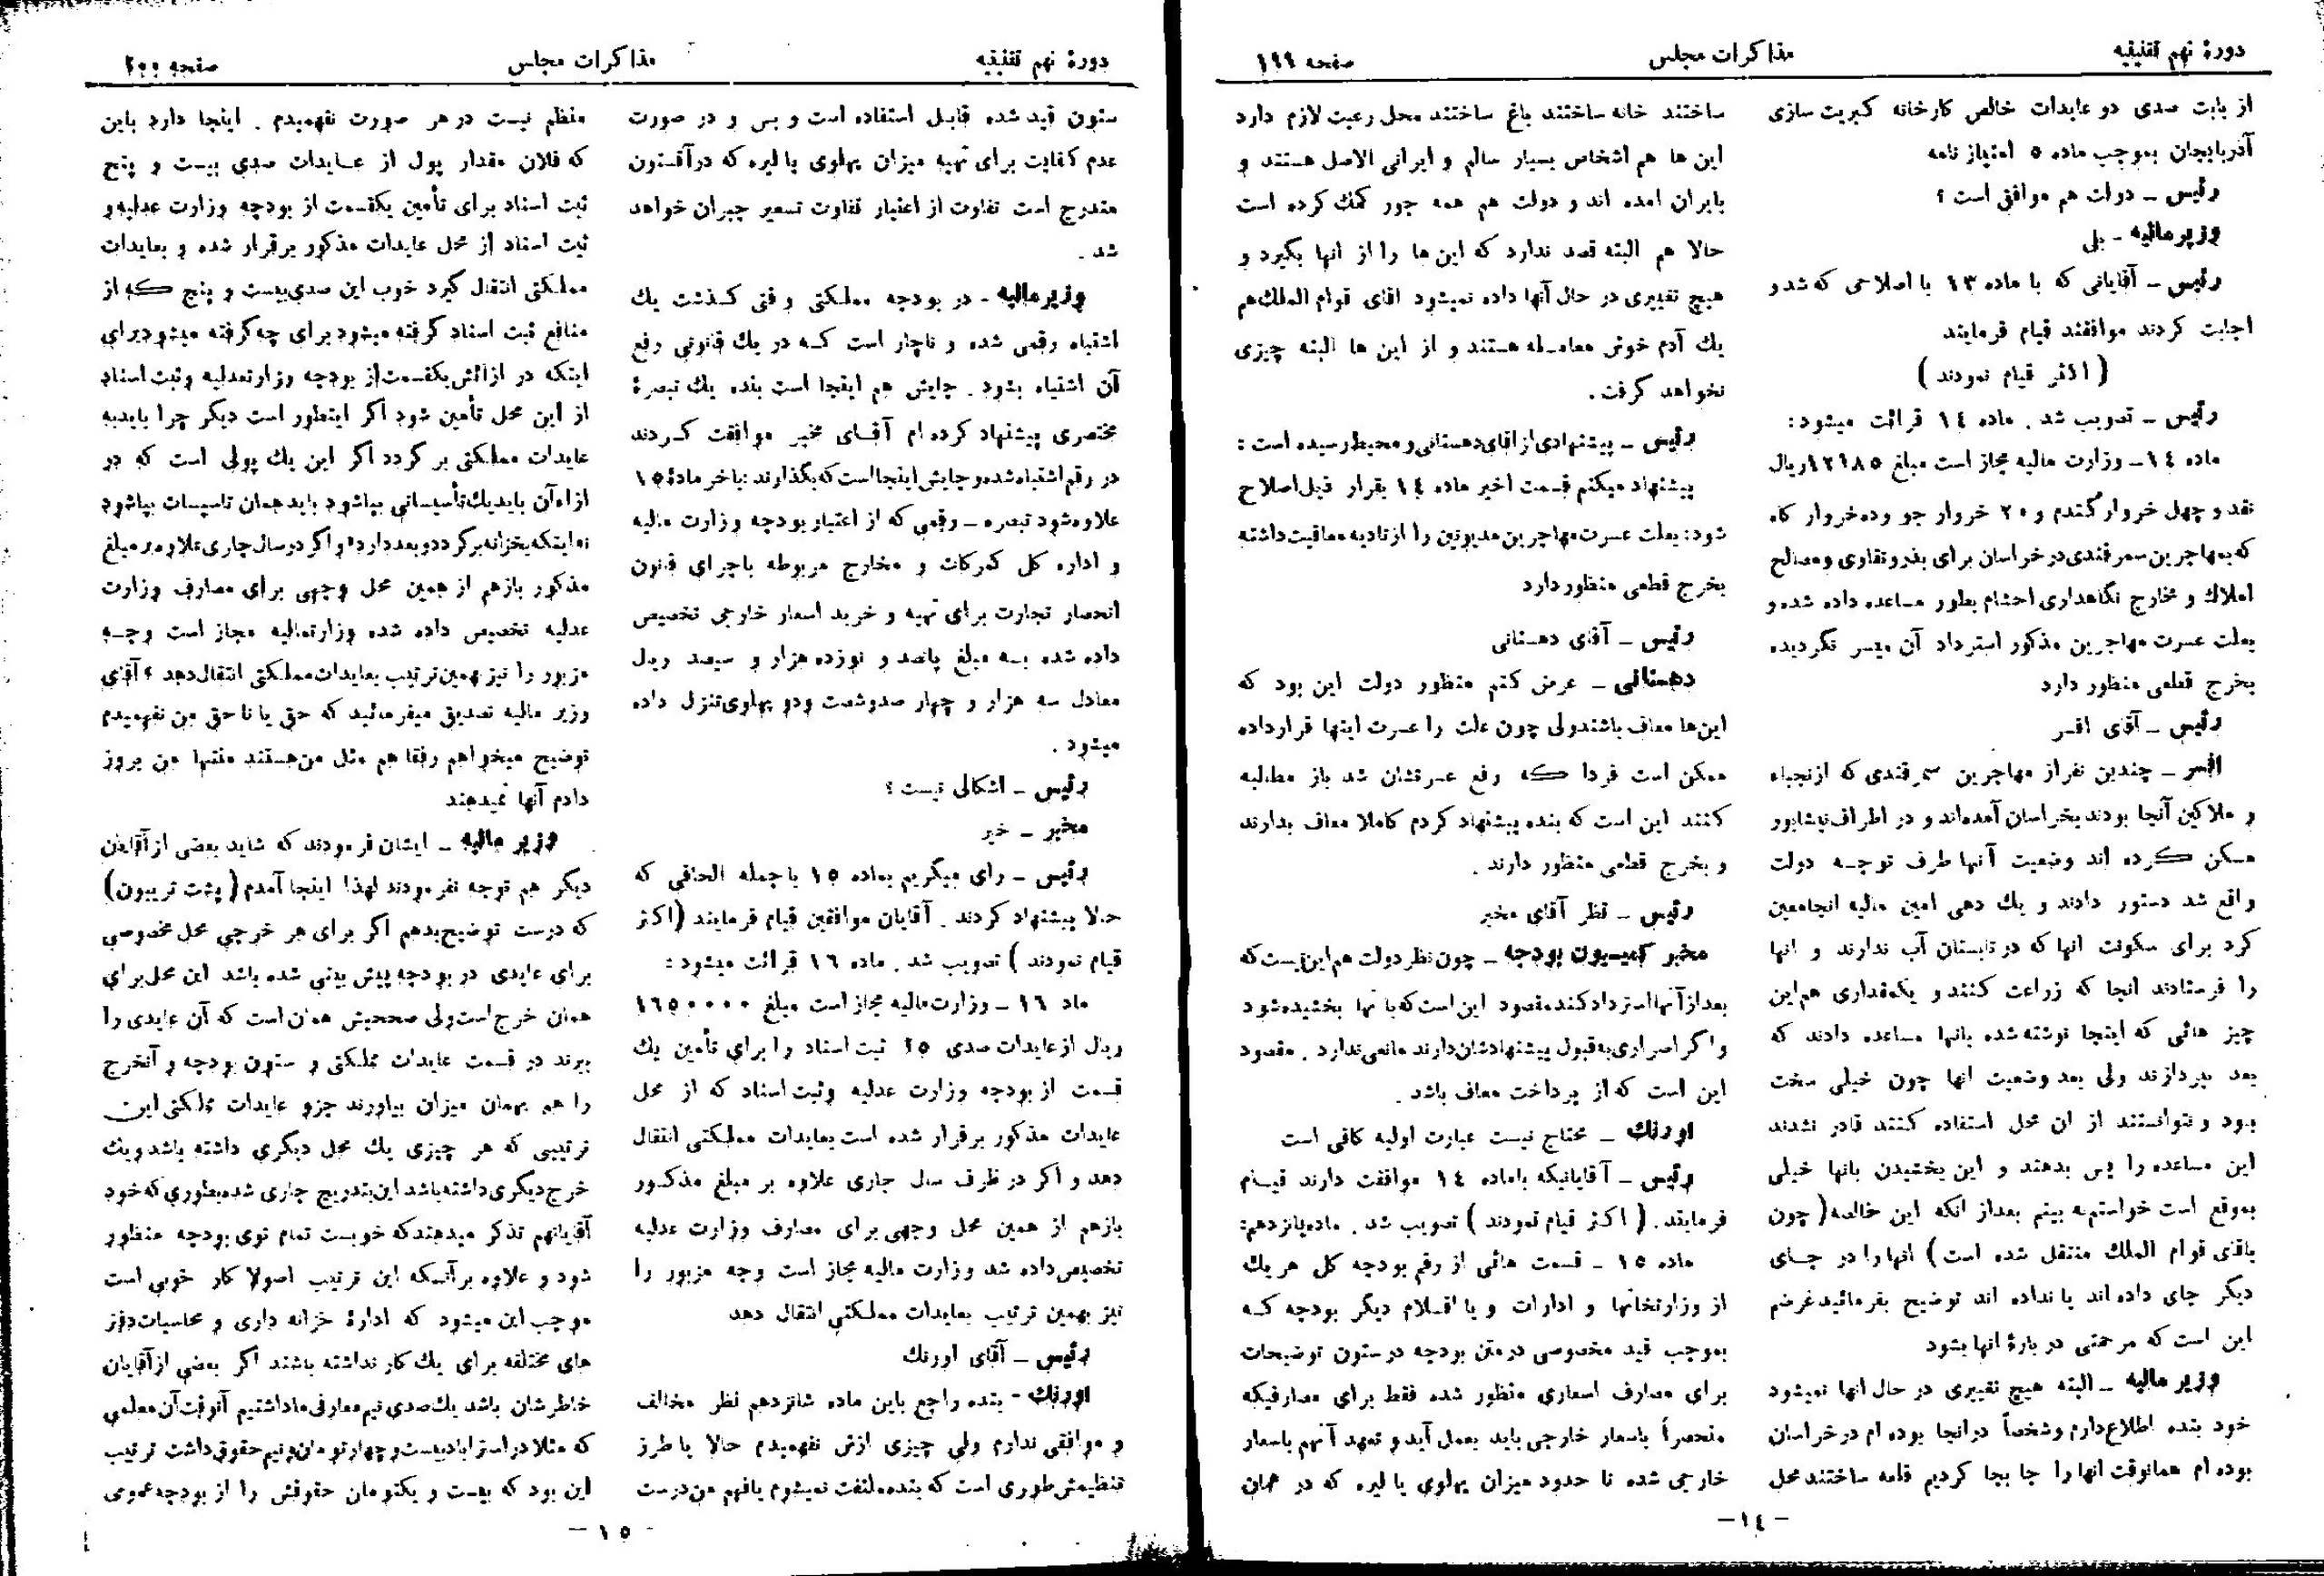 دورهٔ نهم تقنینیه
مذاکرات مجلس
صفحه ۱۹۹
از بابت صدی دو عایدات خالص کارخانه کبریت سازی
آذربایجان بموجب ماده ۵ امتیاز نامه
رئیس ــ دولت هم موافق است ؟
وزیرمالیه ـ بلی
رئیس ــ آقایانی که با ماده ۱۳ با اصلاحی که شد و
اجابت کردند موافقند قیام فرمایند
( اکثر قیام نمودند )
رئیس ــ تصویب شد . ماده ۱٤ قرائت میشود :
ماده ۱٤ ــ وزارت مالیه مجاز است مبلغ ۱۲۹۸۵ ریال
نقد و چهل خروار گندم و ۲۰ خروار جو و ده خروار کاه
که بمهاجرین سمرقندی در خراسان برای بذر و تقاوی و مصالح
املاك و مخارج نگاهداری احشام بطور مساعده داده شده و
بعلت عسرت مهاجرین مذکور استرداد آن میسر نگردیده
بخرج قطعی منظور دارد
رئیس ــ آقای افسر
افسر ــ چندین نفر از مهاجرین سمرقندی که از نجباء
و ملاکین آنجا بودند بخراسان آمده‌اند و در اطراف نیشابور
مسکن کرده اند وضعیت آنها طرف توجه دولت
واقع شد دستور دادند و یك دهی امین مالیه انجا معین
کرد برای سکونت انها که در تابستان آب ندارند و انها
را فرستادند آنجا که زراعت کنند و یکمقداری هم این
چیز هائی که اینجا نوشته شده بانها مساعده دادند که
بعد بپردازند ولی بعد وضعیت انها چون خیلی سخت
بود و نتوانستند از ان محل استفاده کنند قادر نشدند
این مساعده را پس بدهند و این بخشیدن بانها خیلی
بموقع است خواستم به بینم بعد از انکه این خالصه ( چون
باقای قوام الملك منتقل شده است ) انها را در جای
دیگر جای داده اند یا نداده اند توضیح بفرمائید غرضم
این است که مرحمتی در بارهٔ انها بشود
وزیر مالیه ــ البته هیچ تغییری در حال انها نمیشود
خود بنده اطلاع دارم و شخصاً در انجا بوده ام در خراسان
بوده ام همانوقت انها را جا بجا کردیم قلعه ساختند محل
ساختند خانه ساختند باغ ساختند محل رعیت لازم دارد
این ها هم اشخاص بسیار سالم و ایرانی الاصل هستند و
بایران امده اند و دولت هم همه جور کمك کرده است
حالا هم البته قصد ندارد که این ها را از انها بگیرد و
هیچ تغییری در حال آنها داده نمیشود اقای قوام الملك هم
یك آدم خوش معامله هستند و از این ها البته چیزی
نخواهد گرفت .
رئیس ــ پیشنهادی از اقای دهستانی و محیط رسیده است :
پیشنهاد میکنم قسمت اخیر ماده ۱٤ بقرار ذیل اصلاح
شود : بعلت عسرت مهاجرین مدیونین را از تادیه معافیت داشته
بخرج قطعی منظور دارد
رئیس ــ آقای دهستانی
دهستانی ــ عرض کنم منظور دولت این بود که
این‌ها معاف باشند ولی چون علت را عسرت اینها قرار داده
ممکن است فردا که رفع عسرتشان شد باز مطالبه
کنند این است که بنده پیشنهاد کردم کاملا معاف بدارند
و بخرج قطعی منظور دارند .
رئیس ــ نظر آقای مخبر
مخبر کمیسیون بودجه ــ چون نظر دولت هم این نیست که
بعد از آنها استرداد کند مقصود این است که بآنها بخشیده شود
و اگر اصراری به قبول پیشنهادشان دارند مانعی ندارد . مقصود
این است که از پرداخت معاف باشد .
اورنك ــ محتاج نیست عبارت اولیه کافی است
رئیس ــ آقایانیکه باماده ۱٤ موافقت دارند قیام
فرمایند . ( اکثر قیام نمودند ) تصویب شد . ماده پانزدهم :
ماده ۱۵ ــ قسمت هائی از رقم بودجه کل هر یك
از وزارتخانها و ادارات و یا اقلام دیگر بودجه که
بموجب قید مخصوصی در متن بودجه در ستون توضیحات
برای مصارف اسعاری منظور شده فقط برای مصارفیکه
منحصراً باسعار خارجی باید بعمل آید و تعهد آنهم باسعار
خارجی شده تا حدود میزان پهلوی یا لیره که در همان
ــ ۱٤ ــ
دورهٔ نهم تقنینیه
مذاکرات مجلس
صفحه ۲۰۰
ستون قید شده قابل استفاده است و بس و در صورت
عدم کفایت برای تهیه میزان پهلوی یا لیره که در آنستون
مندرج است تفاوت از اعتبار تفاوت تسعیر جبران خواهد
شد .
وزیرمالیه ـ در بودجه مملکتی وقتی گذشت یك
اشتباه رقمی شده و ناچار است که در یك قانونی رفع
آن اشتباه بشود . جایش هم اینجا است بنده یك تبصرهٔ
مختصری پیشنهاد کرده ام آقای مخبر موافقت کردند
در رقم اشتباه شده و جایش اینجا است که بگذارند : باخر مادهٔ ۱۵
علاوه شود تبصره ــ رقمی که از اعتبار بودجه وزارت مالیه
و اداره کل گمرکات و مخارج مربوطه باجرای قانون
انحصار تجارت برای تهیه و خرید اسعار خارجی تخصیص
داده شده به مبلغ پانصد و نوزده هزار و سیصد ریال
معادل سه هزار و چهار صد و شصت و دو پهلوی تنزل داده
میشود .
رئیس ــ اشکالی نیست ؟
مخبر ــ خیر
رئیس ــ رأی میگیریم بماده ۱۵ با جمله الحاقی که
حالا پیشنهاد کردند . آقایان موافقین قیام فرمایند ( اکثر
قیام نمودند ) تصویب شد . ماده ۱٦ قرائت میشود :
ماد ۱٦ ــ وزارت مالیه مجاز است مبلغ ۱٦۵۰۰۰۰
ریال از عایدات صدی ۲۵ ثبت اسناد را برای تأمین یك
قسمت از بودجه وزارت عدلیه و ثبت اسناد که از محل
عایدات مذکور برقرار شده است بعایدات مملکتی انتقال
دهد و اگر در ظرف سال جاری علاوه بر مبلغ مذکور
بازهم از همین محل وجهی برای مصارف وزارت عدلیه
تخصیص داده شد وزارت مالیه مجاز است وجه مزبور را
نیز بهمین ترتیب بعایدات مملکتی انتقال دهد
رئیس ــ آقای اورنك
اورنك ـ بنده راجع باین ماده شانزدهم نظر مخالف
و موافقی ندارم ولی چیزی ازش نفهمیدم حالا یا طرز
تنظیمش طوری است که بنده ملتفت نمیشوم یا فهم من درست
منظم نیست در هر صورت نفهمیدم . اینجا دارد باین
که فلان مقدار پول از عایدات صدی بیست و پنج
ثبت اسناد برای تأمین یکقسمت از بودجه وزارت عدلیه و
ثبت اسناد از محل عایدات مذکور برقرار شده و بعایدات
مملکتی انتقال گیرد خوب این صدی بیست و پنج که از
منافع ثبت اسناد گرفته میشود برای چه گرفته میشود برای
اینکه در ازائش یکقسمت از بودجه وزارتعدلیه و ثبت اسناد
از این محل تأمین شود اگر اینطور است دیگر چرا باید به
عایدات مملکتی بر گردد اگر این یك پولی است که در
ازاء آن باید یك تأسیساتی بپاشود باید همان تاسیسات بپاشود
نه اینکه بخزانه برگردد و بعد دارد « و اگر در سال جاری علاوه بر مبلغ
مذکور بازهم از همین محل وجهی برای مصارف وزارت
عدلیه تخصیص داده شده وزارتمالیه مجاز است وجه
مزبور را نیز بهمین ترتیب بعایدات مملکتی انتقال دهد ؟ آقای
وزیر مالیه تصدیق میفرمائید که حق یا ناحق من نفهمیدم
توضیح میخواهم رفقا هم مثل من هستند منتها من بروز
دادم آنها نمیدهند
وزیر مالیه ــ ایشان فرمودند که شاید بعضی از آقایان
دیگر هم توجه نفرمودند لهذا اینجا آمدم ( پشت تریبون )
که درست توضیح بدهم اگر برای هر خرجی محل مخصوصی
برای عایدی در بودجه پیش بینی شده باشد این محل برای
همان خرج است ولی صحیحش همان است که آن عایدی را
ببرند در قسمت عایدات مملکتی و ستون بودجه و آنخرج
را هم بهمان میزان بیاورند جزو عایدات مملکتی این
ترتیبی که هر چیزی یك محل دیگری داشته باشد و یك
خرج دیگری داشته باشد این بتدریج جاری شده بطوری که خود
آقایانهم تذکر میدهند که خوبست تمام توی بودجه منظور
شود و علاوه بر آنکه این ترتیب اصولا کار خوبی است
موجب این میشود که ادارهٔ خزانه داری و محاسبات دفتر
های مختلفه برای یك کار نداشته باشند اگر بعضی از آقایان
خاطرشان باشد یك صدی نیم معارفی ما داشتیم آنوقت آن معلمی
که مثلا در استراباد بیست و چهار تومان و نیم حقوق داشت ترتیب
این بود که بیست و یکتومان حقوقش را از بودجه عمومی
ــ ۱۵ ــ